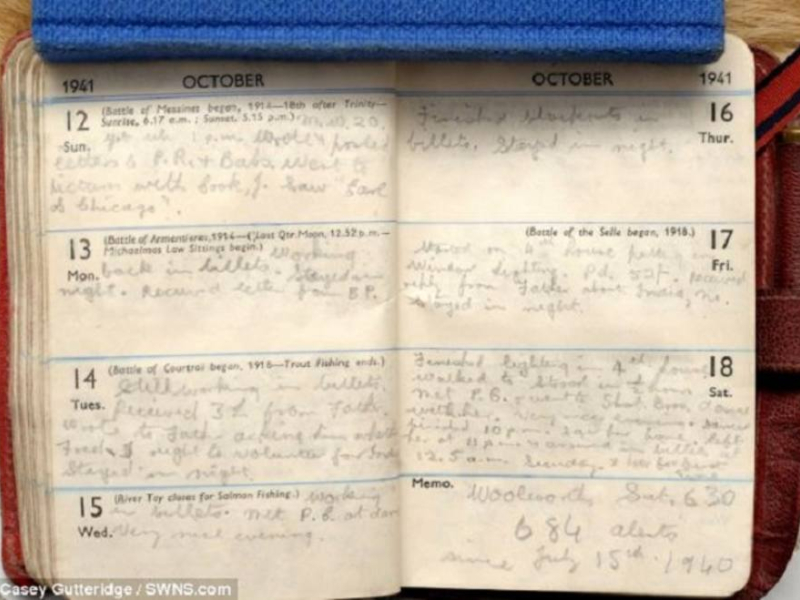 1941 OCTOBER
12 (Battle of Messines began, 1914—18th after Trinity—
Sun. Sunrise, 6.17 a.m. : Sunset, 5.15 p.m.)
got up 1 p.m. Wrote & posted
letters to P.R. & Babs. Went to
pictures with Cook, J. Saw "Earl
of Chicago".
13 (Battle of Armentieres, 1914—Last Qtr. Moon, 12.52 p.m.—
Mon. Michaelmas Law Sittings begin.) Working
back in billets. Stayed in
night. Received letter from B.P.
14 (Battle of Courtrai began, 1918—Trout Fishing ends.)
Tues. Still working in billets.
Received 3 from Fath.
Wrote to Fath. asking him what
Fred & I ought to volunteer for
Stayed in night.
15 (River Tay closes for Salmon Fishing.) Working
Wed. in billets. Met P.B. at dan
Very nice evening.
OCTOBER 1941
16 Thur.
Finished blackouts in
billets. Stayed in night.
(Battle of the Selle began, 1918.) 17 Fri.
Started on 4th house
Window lighting. Pd. 52/-. Received
reply from Father about India, no.
Stayed in night.
18 Sat.
Finished lighting in 4th house
walked to Strood in 2 hours
met P.B. & went to Short Bros. dance
with her. Very nice evening. Dance
finished 10 p.m. saw her home. left
her at 11 p.m. & arrived in billets at
12.5 a.m. Sunday.
Memo. Woolworths Sat. 6.30
684 alerts
since July 15th 1940
Casey Gutteridge / SWNS.com